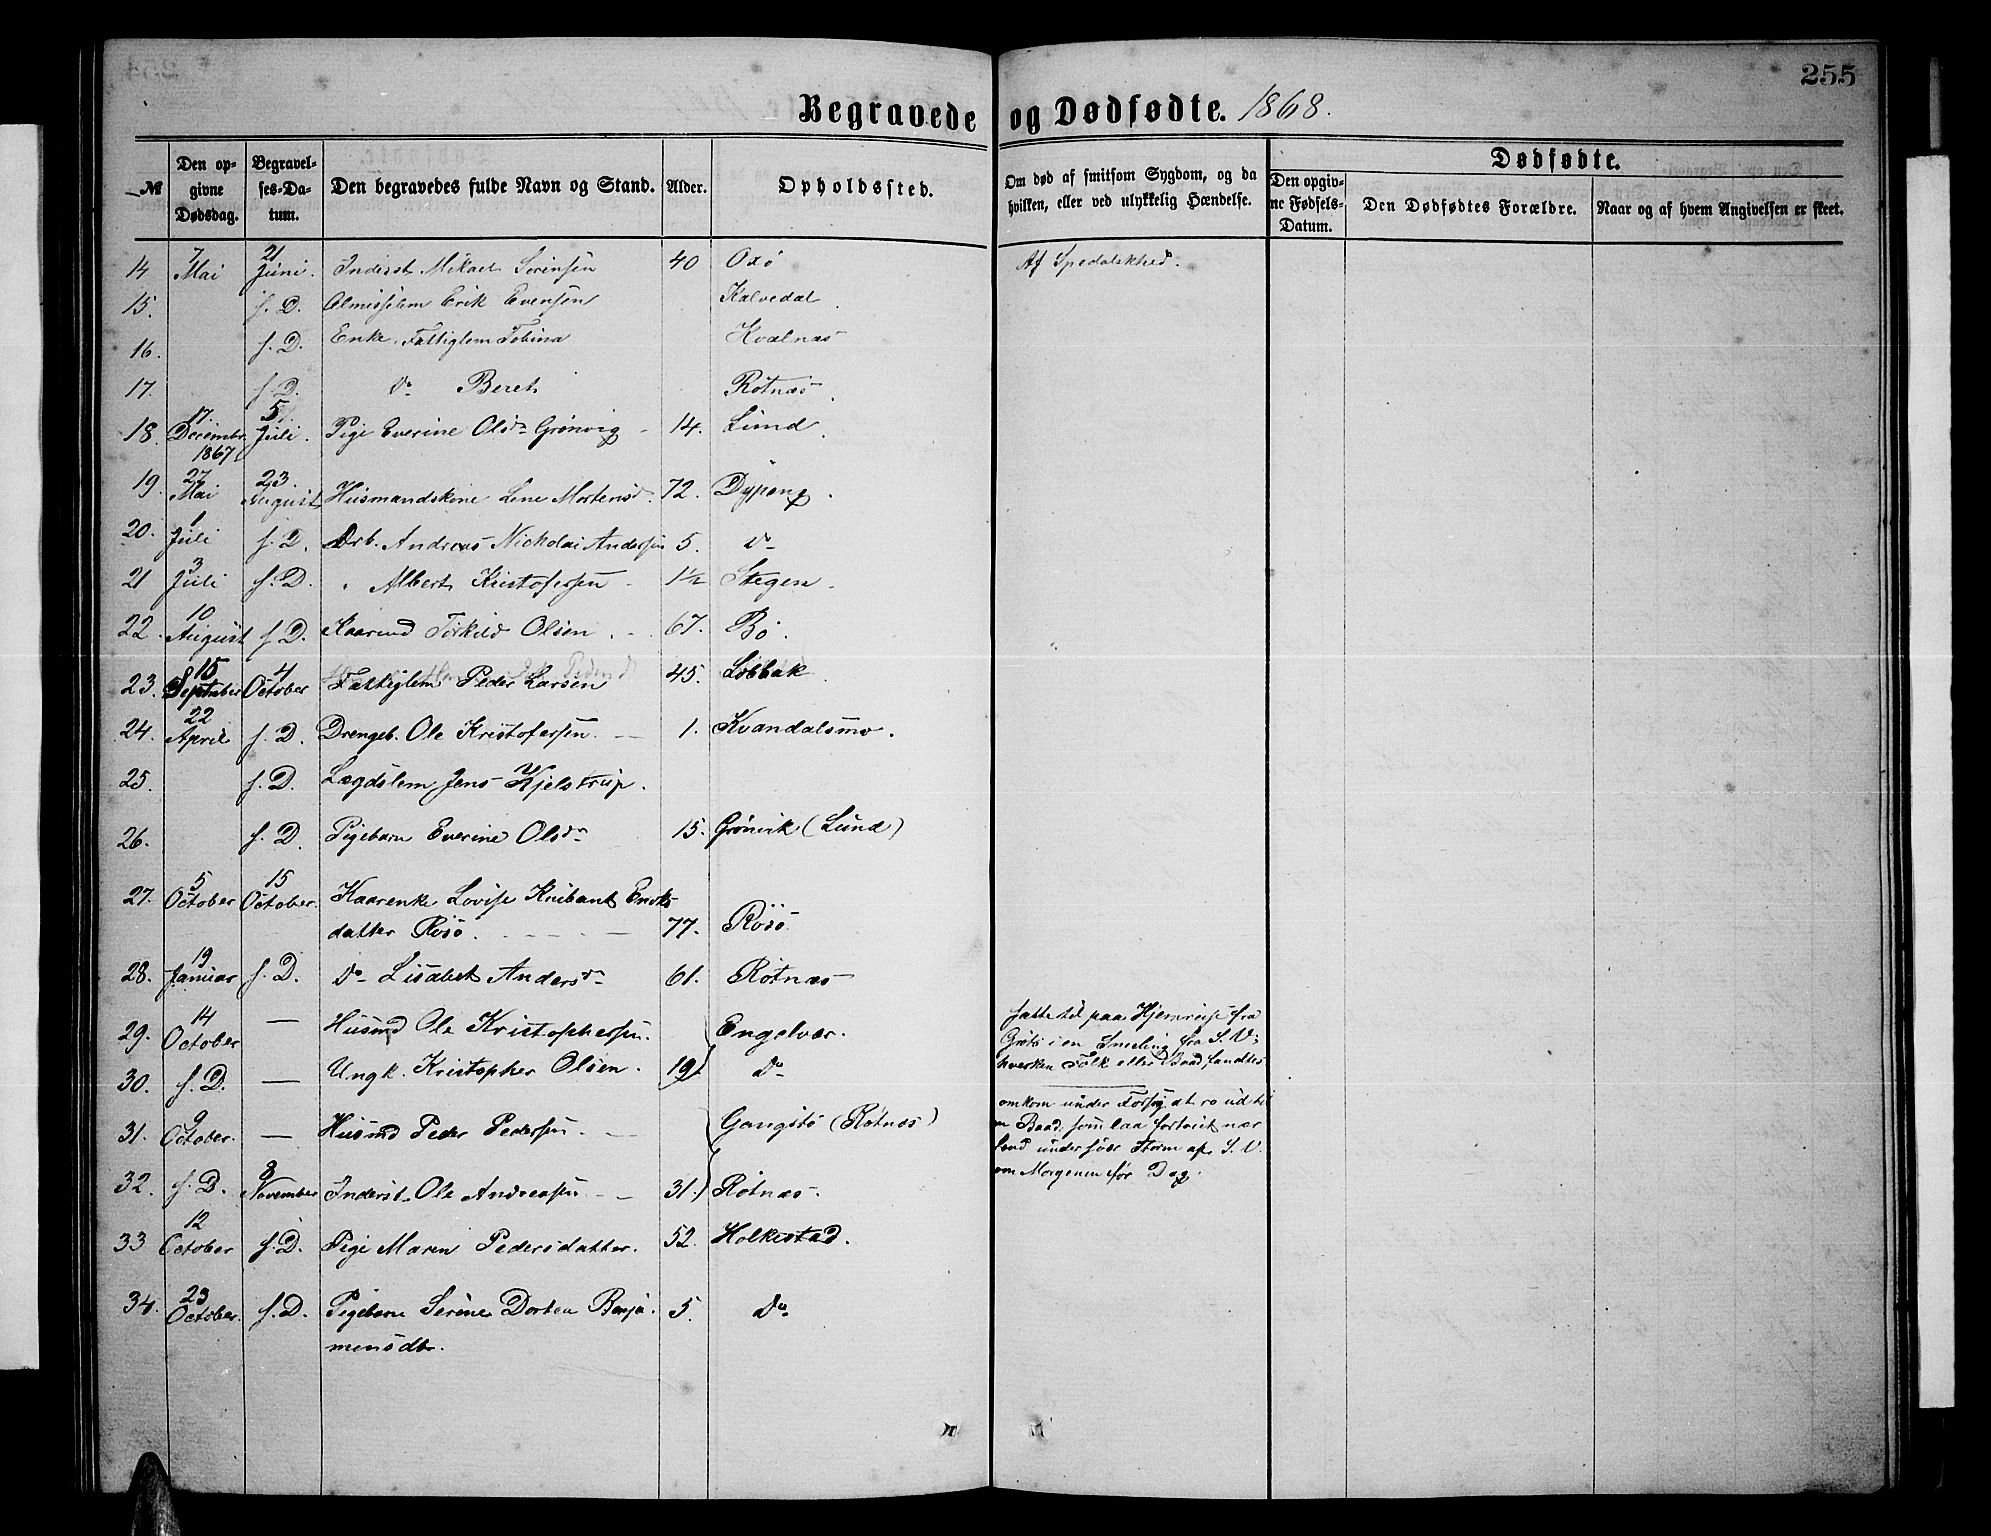 255
Begravede og Dødfødte. 1868.
№ Den opgivne Dødsdag. Begravelses-Datum. Den begravedes fulde Navn og Stand. Alder. Opholdssted. Om død af smitsom Sygdom, og da hvilken, eller ved ulykkelig Hændelse. Dødfødte. Den opgivne Fødsels-Datum. Den Dødfødtes Forældre. Naar og af hvem Angivelsen er skeet.
14 7 Mai 21 Juni. Inderst Mikael Sørensen 40 Oxø Af Spedalskhed.
15. s. D. Almisselem Erik Evensen Kalvedal
16. s. D. Enke, Fattiglem Tobina Kvalnæs
17. s. D. do Beret Røtnæs
18. 17. Decembr 1867 5 Juli. Pige Everine Olsdr Grønvig 14. Lund
19. 27 Mai 23. August Husmandskone Lene Mortensd. 72. Dypeng.
20. 1 Juli s. D. Drb. Andreas Nickolai Andersen 5. do
21 3 Juli s. D. " Albert Kristofersen 1½ Stegen
22. 10 August s. D. Kaarmd Torkild Olsen 67. Bø.
23. 15 September 4 October Fattiglem Peder Larsen 45.Løbbak
24. 22 April s. D. Drengeb. Ole Kristofersen. 1. Kvandalsmo.
25. s. D. Lægdslem Jens Kjelstrup.
26. s. D. Pigebarn Everine Olsdr 15. Grönvik (Lund)
27. 5 October 15 October. Kaarenke Lovise Knibant Enoks
datter Røsø. 77. Røsø
28. 19 Januar s. D. do Lisabet Andersdr 61. Røtnæs
29. 14 October — Husmd Ole Kristophersen. Engelvær.
30. s. D. — Ungk. Kristopher Olsen. 19. do
satte til paa Hjemreise fra
Grøtø i en Sneeling fra S. V;
hverken Folk eller Baad fandtes
31. 9 October. — Husmd Peder Pedersen. Gangstø (Røtnæs)
32. s. D. 8 November Inderst Ole Andreasen 31. Røtnæs.
omkom under Forsøg at ro ud til
en Baad, som laa fortøiet nær
Land under svær Storm af S. V.
om Morgenen før Dag.
33 12 October s. D. Pige Maren Pedersdatter. 52. Holkestad.
34. 23 October. s. D. Pigebarn Serine Dortea Benja-
mensdtr. 5. do